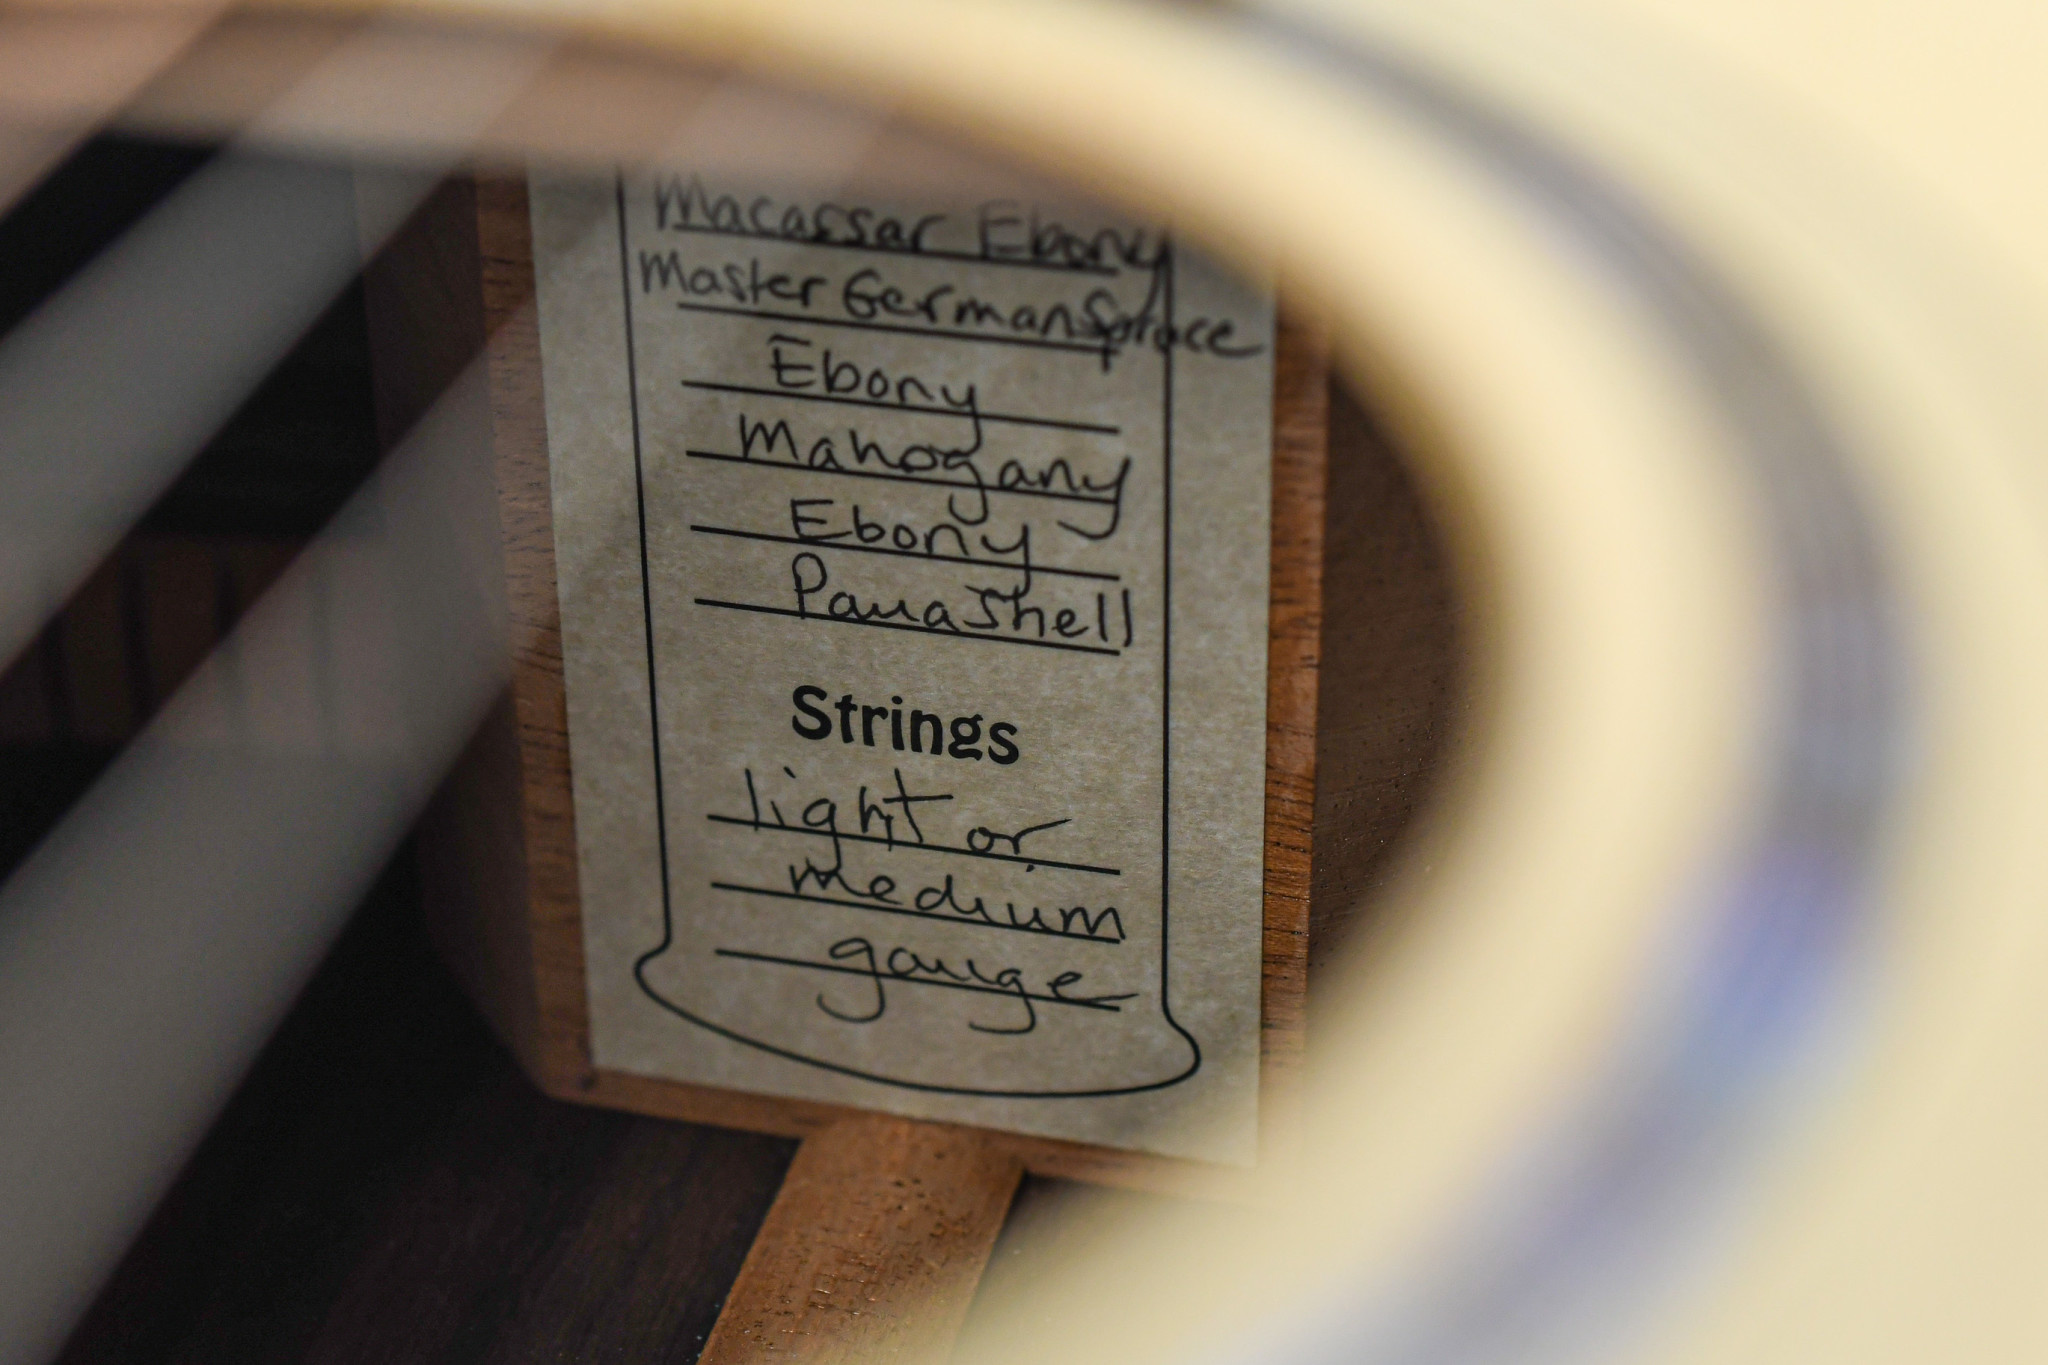 Macassar Ebony
Master German Spruce
Ebony
Mahogany
Ebony
Paua Shell
Strings
light or
medium
gauge